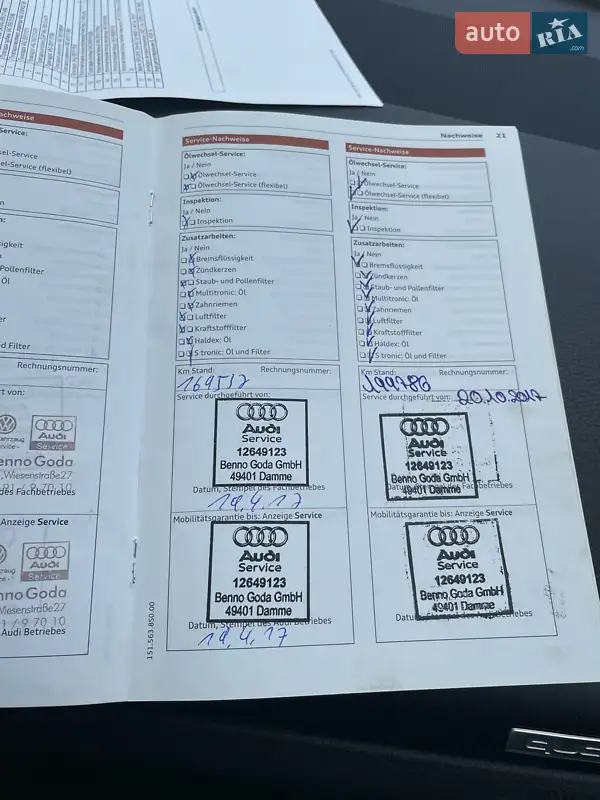 auto RIA .com
achweise
Service:
el-Service
el-Service (flexibel)
on
eit:
sigkeit
Pollenfilter
Öl
er
er
Rechnungsnummer:
t von:
Audi
Service
enno Goda
.,Wiesenstraße27
01 / 9 70 10
des Fachbetriebes
Anzeige Service
Audi
Service
nno Goda
Wiesenstraße27
1 / 9 70 10
Audi Betriebes
151.563.850.00
Service-Nachweise
Ölwechsel-Service:
Ja / Nein
Ölwechsel-Service
Ölwechsel-Service (flexibel)
Inspektion:
Ja / Nein
Inspektion
Zusatzarbeiten:
Ja / Nein
Bremsflüssigkeit
Zündkerzen
Staub- und Pollenfilter
Multitronic: Öl
Zahnriemen
Luftfilter
Kraftstofffilter
Haldex: Öl
S tronic: Öl und Filter
Km Stand: Rechnungsnummer:
169537
Service durchgeführt von:
Audi
Service
12649123
Benno Goda GmbH
49401 Damme
Datum, Stempel des Fachbetriebes
19.4.17
Mobilitätsgarantie bis: Anzeige Service
Audi
Service
12649123
Benno Goda GmbH
49401 Damme
Datum, Stempel des Audi Betriebes
19.4.17
Nachweise 21
Service-Nachweise
Ölwechsel-Service:
Ja / Nein
Ölwechsel-Service
Ölwechsel-Service (flexibel)
Inspektion:
Ja / Nein
Inspektion
Zusatzarbeiten:
Ja / Nein
Bremsflüssigkeit
Zündkerzen
Staub- und Pollenfilter
Multitronic: Öl
Zahnriemen
Luftfilter
Kraftstofffilter
Haldex: Öl
S tronic: Öl und Filter
Km Stand: Rechnungsnummer:
199786
Service durchgeführt von: 20.10.2017
Audi
Service
12649123
Benno Goda GmbH
49401 Damme
Datum, Stempel des Fachbetriebes
Mobilitätsgarantie bis: Anzeige Service
Audi
Service
12649123
Benno Goda GmbH
49401 Damme
Datum, Stempel des Audi Betriebes